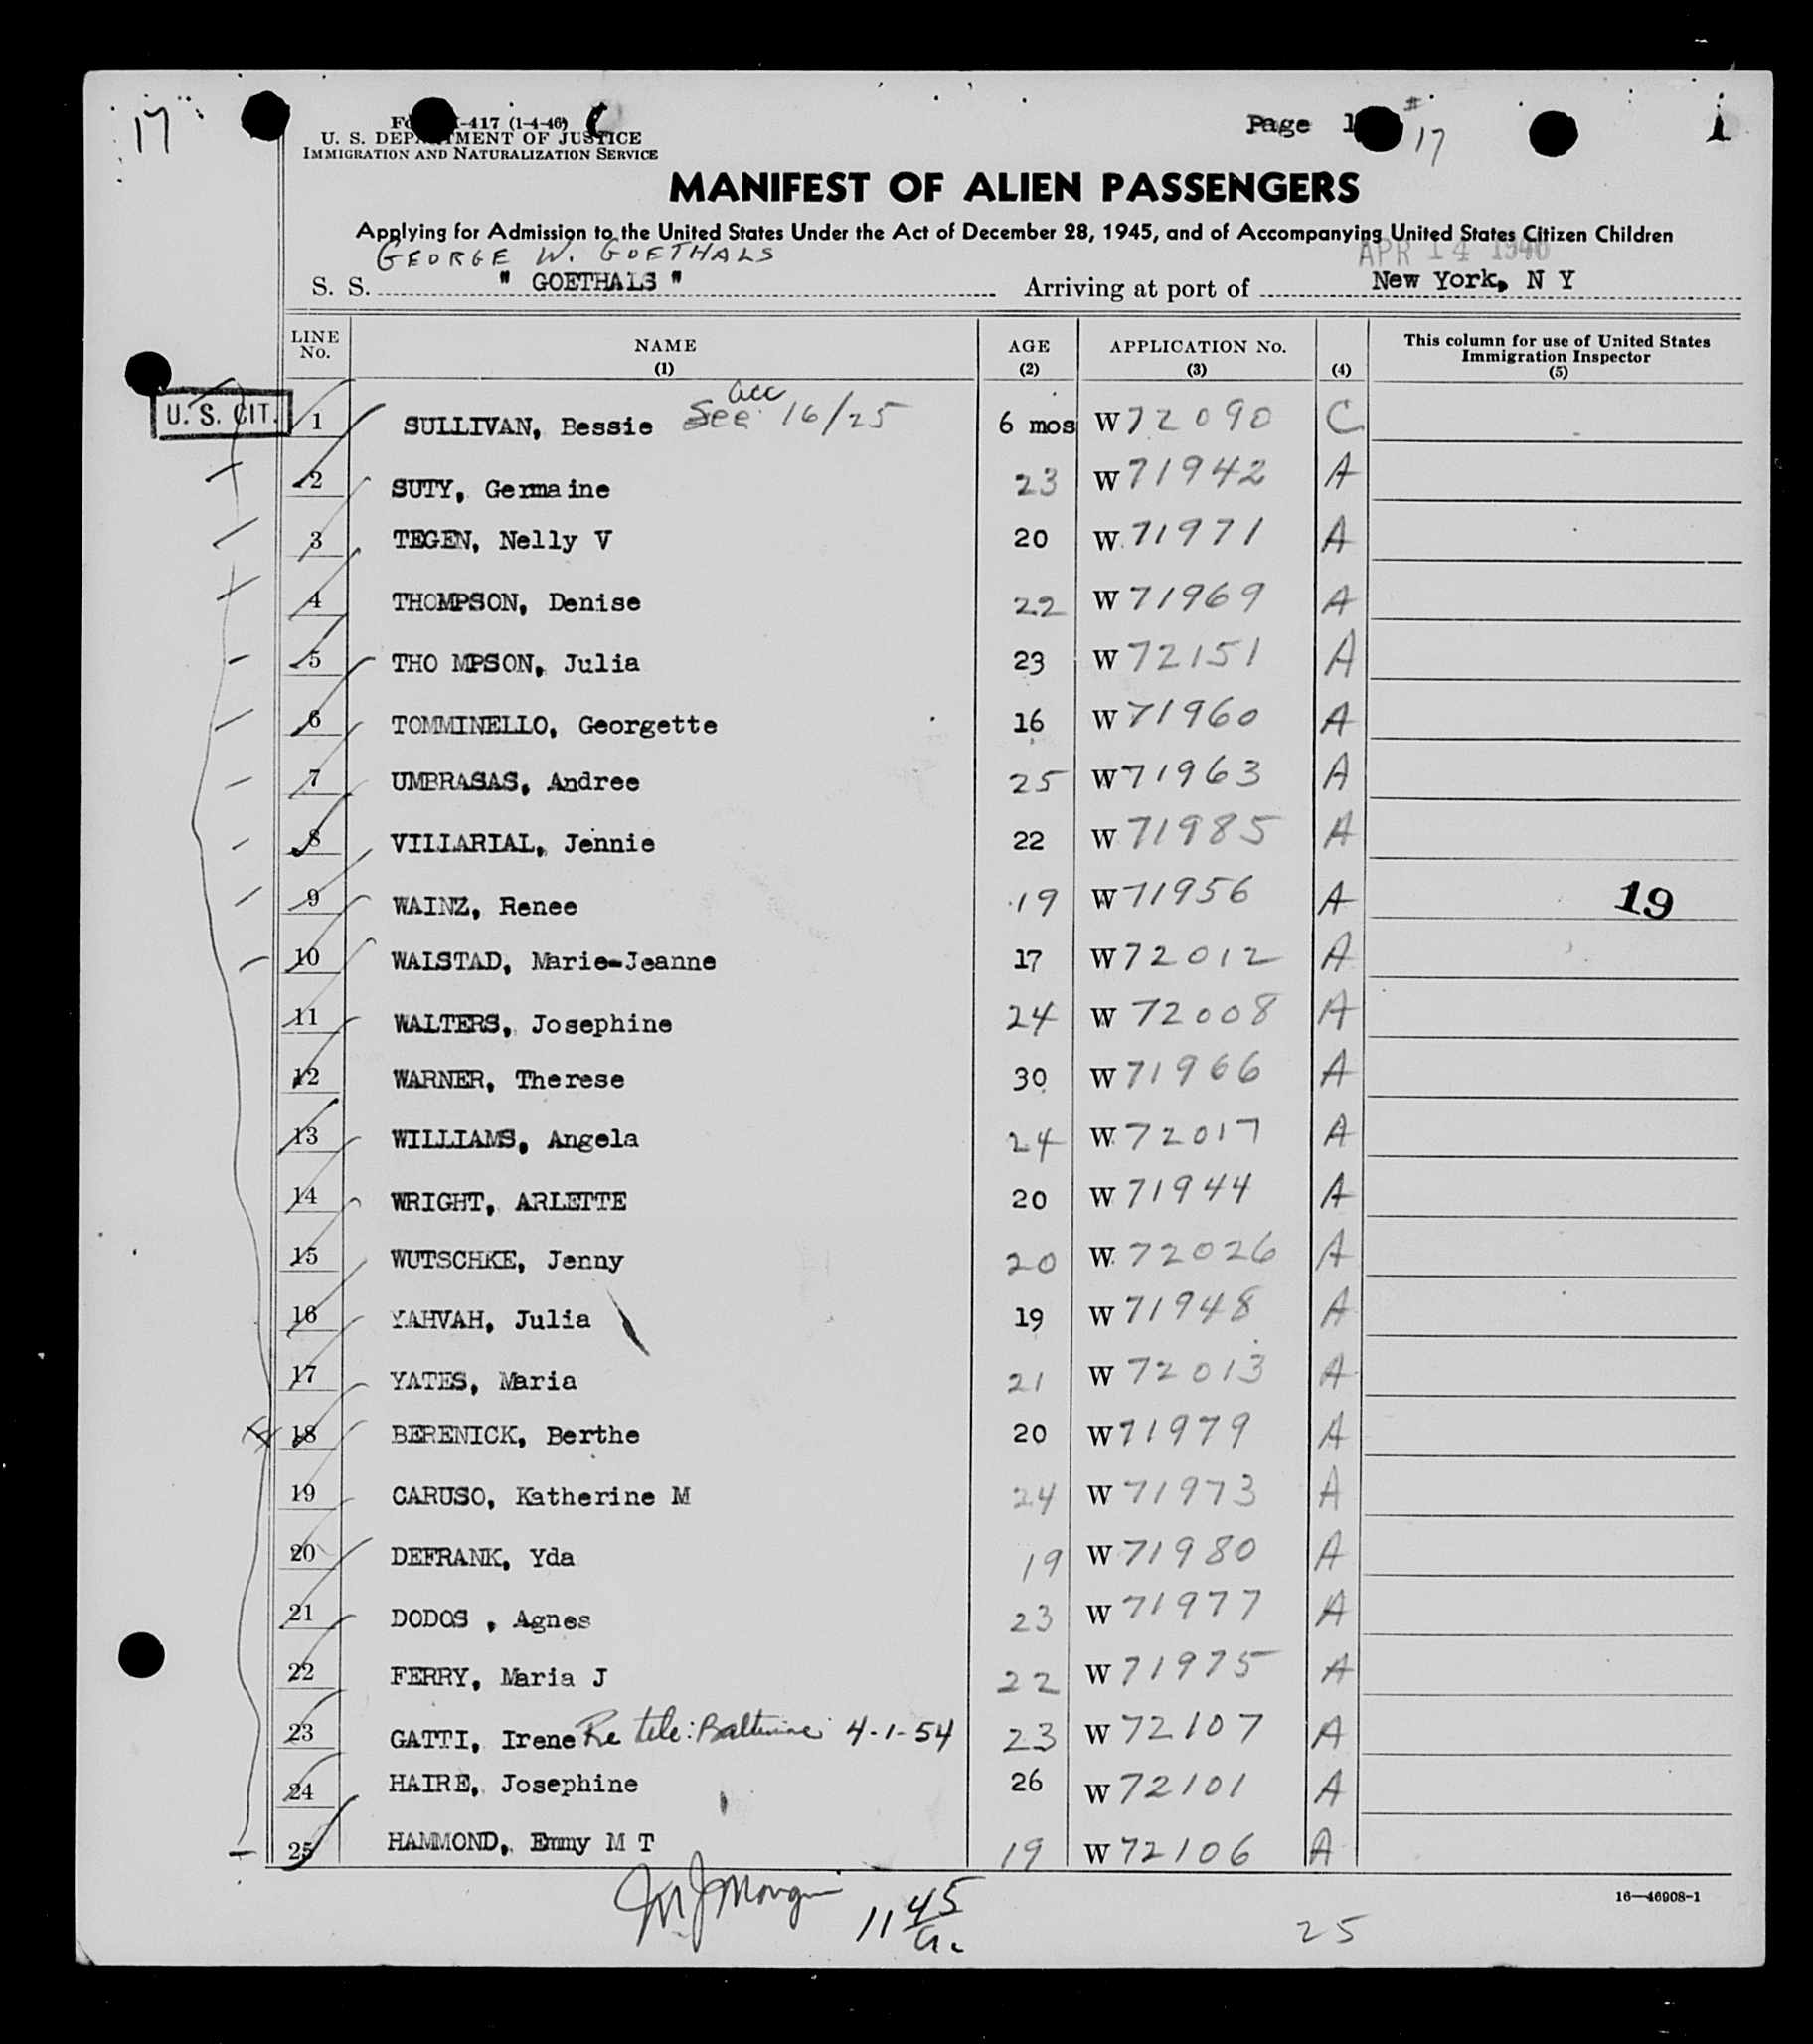 17
-417 (1-4-46)
U. S. DEPARTMENT OF JUSTICE
IMMIGRATION AND NATURALIZATION SERVICE
Page 1
# 17
1
MANIFEST OF ALIEN PASSENGERS
Applying for Admission to the United States Under the Act of December 28, 1945, and of Accompanying United States Citizen Children
GEORGE W. GOETHALS
APR 14 1946
S. S. " GOETHALS " Arriving at port of New York, N Y
LINE No. NAME (1) AGE (2) APPLICATION No. (3) (4) This column for use of United States Immigration Inspector (5)
U. S. CIT. 1 SULLIVAN, Bessie See acc 16/25 6 mos W 72090 C
2 SUTY, Germaine 23 W 71942 A
3 TEGEN, Nelly V 20 W 71971 A
4 THOMPSON, Denise 22 W 71969 A
5 THO MPSON, Julia 23 W 72151 A
6 TOMMINELLO, Georgette 16 W 71960 A
7 UMBRASAS, Andree 25 W 71963 A
8 VILLARIAL, Jennie 22 W 71985 A
9 WAINZ, Renee 19 W 71956 A 19
10 WALSTAD, Marie-Jeanne 17 W 72012 A
11 WALTERS, Josephine 24 W 72008 A
12 WARNER, Therese 30 W 71966 A
13 WILLIAMS, Angela 24 W 72017 A
14 WRIGHT, ARLETTE 20 W 71944 A
15 WUTSCHKE, Jenny 20 W 72026 A
16 YAHVAH, Julia 19 W 71948 A
17 YATES, Maria 21 W 72013 A
18 BERENICK, Berthe 20 W 71979 A
19 CARUSO, Katherine M 24 W 71973 A
20 DEFRANK, Yda 19 W 71980 A
21 DODOS , Agnes 23 W 71977 A
22 FERRY, Maria J 22 W 71975 A
23 GATTI, Irene Re tele: Baltimore 4-1-54 23 W 72107 A
24 HAIRE, Josephine 26 W 72101 A
25 HAMMOND, Emmy M T 19 W 72106 A
16—46908-1
11 45
25